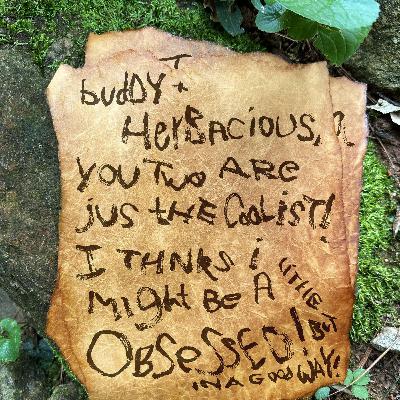 budDY +
HerBACiOUS,
YOU TWO ARE
jus tHE COOLIST!
I THNKS i
Might BE A LittlE
OBSESSED! BUT
IN A GOOD WAY!